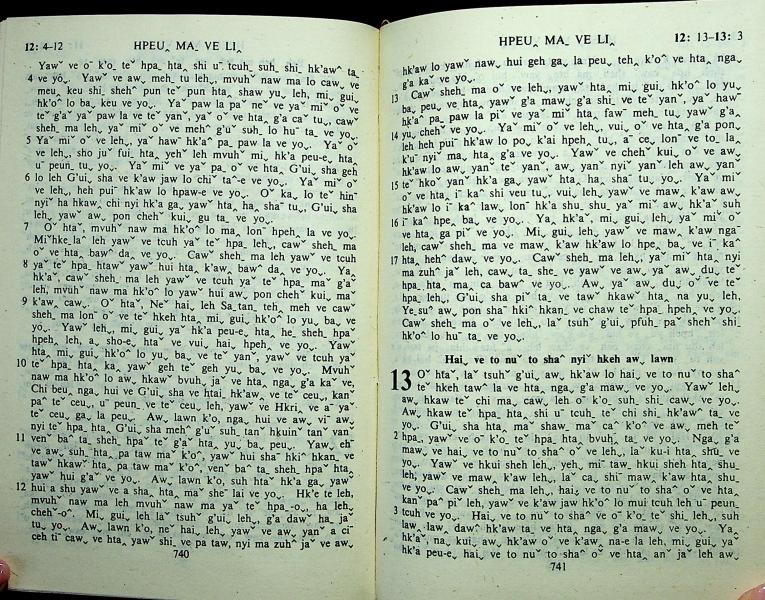 12: 4–12
HPEUꞈ MAˍ VE LIꞈ
Yawˇ ve oˉ kʼoˍ teˇ hpaˍ htaꞈ shi uˉ tcuhˍ suhˍ shiˍ hkʼawˆ taˍ
4 ve yoˬ. Yawˇ ve awˬ mehˍ tu lehˬ, mvuhˇ naw ma lo cawˬ ve
meuˍ keu shiˍ shehˆ punˍ teˇ punˍ htaꞈ shaw yuˬ leh, miˍ guiˬ
hkʼoˆ lo baˬ keu ve yoˬ. Yaˇ paw laˍ paˇ neˇ ve yaˇ miˇ oˇ ve
teˇ gʼaˇ yaˇ paw la ve teˇ yanˇ, yaˇ oˇ ve htaꞈ gʼa caˇ tuˬ, cawˇ
shehˍ ma lehˬ yaˇ miˇ oˇ ve mehˆ gʼuˇ suhˍ lo huˉ taˍ ve yoˬ.
5 Yaˇ miˇ oˇ lehˬ, yaˇ hawˇ hkʼaˆ paˍ pawˍ la ve yoˬ. Yaˇ oˇ
ve lehˬ, sho juˇ fuiˍ htaꞈ yehˇ leh mvuhˇ miˍ hkʼa peu-eˍ htaꞈ
uˉ peunˍ tuˬ yoˬ. Yaˇ miˇ ve yaˇ paˍ oˇ ve htaꞈ, Gʼuiˍ sha geh
6 lo leh Gʼuiˍ sha ve kʼaw jaw lo chiˇ taˆ-e ve yoˬ. Yaˇ miˇ oˇ
ve lehˬ, heh puiˉ hkʼaw lo hpaw-e ve yoˬ. Oˇ kaˍ lo teˇ hinˉ
nyiˇ ha hkawˆ chi nyi hkʼa gaˬ yawˇ htaꞈ haˍ shaˇ tuˬ, Gʼuiˍ sha
leh, yawˇ awˬ pon chehˇ kuiˍ gu ta ve yoˬ.
7 Oˇ htaˇ, mvuhˇ naw ma hkʼoˆ lo maˬ lonˉ hpehˬ la ve yoˬ.
Miˇhkeˍlaˆ leh yawˇ ve tcuh yaˇ teˇ hpaˍ lehˬ, cawˇ shehˍ ma
oˇ ve htaꞈ bawˇ daˬ ve yoˬ. Cawˇ shehˍ ma leh yawˇ ve tcuh
8 yaˇ teˇ hpaˍ htawˇ yawˇ hui htaꞈ kʼawˬ bawˇ daˬ ve yoˬ. Yaꞈ
hkʼaˇ, cawˇ shehˍ ma leh yawˇ ve tcuh yaˇ teˇ hpaˍ maˇ gʼaˇ
leh, mvuhˇ naw ma hkʼoˆ lo yawˇ hui awˬ pon chehˇ kuiˍ maˇ
9 kʼawˬ cawˬ. Oˇ htaˇ, Neˇ haiˍ leh Saˍtanˍ tehˍ mehˍ ve cawˇ
shehˍ ma lonˉ oˇ ve teˍ hkeh htaꞈ, miˍ guiˬ hkʼoˆ lo yuˬ baˬ ve
yoˬ. Yawˇ lehˬ, miˍ guiˬ yaˇ hkʼa peu-eˍ htaꞈ heˍ shehˍ hpaˇ
hpehˍ leh, aˍ sho-eˍ htaˇ ve vuiˍ haiˍ hpehˍ ve yoˬ. Yawˇ
htaꞈ miˍ guiˬ hkʼoˆ lo yuˬ baˬ ve teˇ yanˇ, yawˇ ve tcuh yaˇ
10 teˇ hpaˍ htaꞈ kaˍ yawˇ geh teˇ geh yuˬ baˬ ve yoˬ. Mvuhˇ
naw ma hkʼoˆ lo awˬ hkawˇ bvuhˬ jaˇ ve htaꞈ ngaˍ gʼa kaˇ ve,
Chi beuˍ ngaˍ hui ve Gʼuiˍ sha ve htai hkʼawˬ ve teˇ ceuˬ, kanˇ
paˆ teˇ ceuˬ, uˉ peunˍ ve teˇ ceuˬ leh, yawˇ ve Hkriˍ ve aˉ yaˇ
teˇ ceuˬ gaˬ la peuˬ. Awˬ lawnˬ kʼo, ngaˍ hui ve awˬ viˉ awˬ
nyi teˇ hpaˍ htaꞈ Gʼuiˍ sha mehˆ gʼuˇ suhˍ tanˇ hkuinˇ tanˇ vanˇ
11 venˇ baˆ taˍ shehˍ hpaˇ teˇ gʼaˇ htaꞈ yuˬ baˬ peuˬ. Yawˇ ehˉ
ve awˬ suhˍ htaꞈ pa taw ma kʼoˆ, yawˇ hui shaˇ hkiˆ hkanˍ ve
tawˇ hkawˇ htaꞈ pa taw ma kʼoˆ, venˇ baˆ taˍ shehˍ hpaˇ htaꞈ,
yawˇ hui gʼaˇ ve yoˬ. Awˬ lawnˬ kʼo, suhˍ htaˇ hkʼa gaˬ yawˇ
12 hui aˍ shu yawˇ ve aˍ sha htaꞈ maˇ sheˆ lai ve yoˬ. Hkʼe te leh,
mvuhˇ naw ma leh mvuhˇ naw ma yaˇ teˇ hpaˍ-oˬ, ha lehˬ
chehˇ-oˆ. Miˍ guiˬ leh laˇ tsuhˇ gʼuiˬ lehˬ, gʼa dawˇ haˍ jaˇ
tuˬ yoˬ. Awˬ lawnˬ kʼo, neˇ haiˍ lehˬ, yawˇ ve awˬ yanˆ aˍ ciˉ
ceh tiˉ cawˬ ve htaꞈ yawˇ shiˬ ve pa taw, nyi ma zuhˆ jaˇ ve awˬ
740
HPEUꞈ MAˍ VE LIꞈ
12: 13–13: 3
hkʼaw lo yawˇ nawˬ hui geh gaˬ la peuˬ tehˬ kʼoˆ ve htaꞈ ngaˍ
gʼa kaˇ ve yoˬ.
13 Cawˇ shehˍ ma oˇ ve lehˬ, yawˇ htaꞈ miˍ guiˬ hkʼoˆ lo yuˬ
baˬ peuˍ ve htaꞈ, yawˇ gʼa mawˬ gʼa shiˬ ve teˇ yanˇ, yaˇ hawˇ
hkʼaˆ paˍ pawˍ la piˇ ve yaˇ miˇ htaꞈ fawˉ mehˍ tuˬ yawˇ gʼaˍ
14 yuˬ chehˇ ve yoˬ. Yaˇ miˇ oˇ ve lehˬ, vuiˬ oˇ ve htaꞈ gʼa ponˍ
leh heh puiˉ hkʼaw lo poˬ kʼai hpehˬ tuˬ, aˉ ceˬ lonˉ ve to laꞈ
kʼuˉ nyiˇ maˬ htaꞈ gʼa ve yoˬ. Yawˇ ve chehˇ kuiˍ oˇ ve awˬ
hkʼaw lo awˬ yanˇ teˇ yanˇ, awˬ yanˇ nyiˇ yanˇ leh awˬ yanˇ
15 teˇ hkoˇ yanˇ hkʼa gaˬ yawˇ htaꞈ haˍ shaˇ tuˬ yoˬ. Yaˇ miˇ
oˇ ve htaꞈ iˉ kaˆ shi veu tuˬ, vuiˬ lehˬ yawˇ ve mawˬ kʼaw awˬ
hkʼaw lo iˉ kaˆ lawˬ lonˉ hkʼa shuˬ shuˬ yaˇ miˇ awˬ hkʼaˇ suh
16 iˉ kaˆ hpeˬ baˬ ve yoˬ. Yaꞈ hkʼaˇ, miˍ guiˬ lehˬ yaˇ miˇ oˇ
ve htaꞈ ga piˇ ve yoˬ. Miˍ guiˬ lehˬ yawˇ ve mawˬ kʼaw ngaˇ
leh, cawˇ shehˍ ma ve mawˬ kʼaw hkʼaw lo hpeˬ baˬ ve iˉ kaˆ
17 htaꞈ hehˆ dawˬ ve yoˬ. Cawˇ shehˍ ma lehˬ, yaˇ miˇ htaꞈ nyi
ma zuhˆ jaˇ leh, cawˬ taˍ she ve yawˇ ve awˬ yaˇ awˬ duˬ teˇ
hpaˍ htaꞈ maˬ ca bawˆ ve yoˬ. Awˬ yaˇ awˬ duˬ oˇ ve teˇ
hpaˍ lehˬ, Gʼuiˍ sha piˇ taˍ ve tawˇ hkawˇ htaꞈ na yuˬ leh,
Yeˍsuˆ awˬ pon shaˇ hkiˆ hkanˍ ve chaw teˇ hpaˍ hpehˬ ve yoˬ.
Cawˇ shehˍ ma oˇ ve lehˬ, laˇ tsuhˇ gʼuiˬ pfuhˬ paˇ shehˇ shiˍ
hkʼo lo huˉ taˍ ve yoˬ.
Haiˬ ve to nuˇ to shaˆ nyiˇ hkeh awˬ lawn
13 Oˇ htaˇ, laˇ tsuhˇ gʼuiˬ awˬ hkʼaw lo haiˬ ve to nuˇ to shaˆ
teˇ hkeh tawˆ la ve htaꞈ ngaˍ gʼa maw ve yoˬ. Yawˇ lehˬ,
awˬ hkaw te chi maˍ cawˬ leh oˉ kʼoˍ suhˍ shiˍ cawˬ ve yoˬ.
Awˬ hkaw teˇ hpaˍ htaꞈ shi uˉ tcuhˍ teˇ chi shiˍ hkʼawˆ taˍ ve
yoˬ. Gʼuiˍ sha htaꞈ maˇ shawˬ maˇ caˇ kʼoˆ ve awˬ meh teˇ
2 hpaˬ, yawˇ ve oˉ kʼoˍ teˇ hpaˍ htaꞈ bvuhˬ taˍ ve yoˬ. Ngaˍ gʼa
mawˬ ve haiˬ ve to nuˇ to shaˆ oˇ ve lehˬ, laˇ ku-i htaꞈ shū ve
yoˬ. Yawˇ ve hkui sheh lehˬ, yehˬ miˉ tawˬ hkui sheh htaꞈ shuˬ
leh, yawˇ ve mawˬ kʼaw lehˬ, laˇ caˬ shiˉ mawˬ kʼaw htaꞈ shuˬ
ve yoˬ. Cawˇ shehˍ ma lehˬ, haiˬ ve to nuˇ to shaˆ oˇ ve htaꞈ,
kanˇ paˆ piˇ leh, yawˇ ve kʼaw jaw hkʼoˆ lo mui tcuh leh uˉ peunˍ
3 tcuh ve yoˬ. Haiˬ ve to nuˇ to shaˆ ve oˉ kʼoˍ teˇ shiˍ lehˬ, suh
lawˬ lawˬ dawˆ hkʼaw taˍ ve htaꞈ ngaˍ gʼa maw ve yoˬ. Yaꞈ
hkʼaˇ, naˍ kuiˍ awˬ hkʼaw oˇ ve kʼawˬ na-e la lehˬ, miˍ guiˬ yaˇ
hkʼa peu-eˍ, haiˬ ve to nuˇ to shaˆ oˇ ve htaꞈ anˇ jaˇ leh awˬ
741